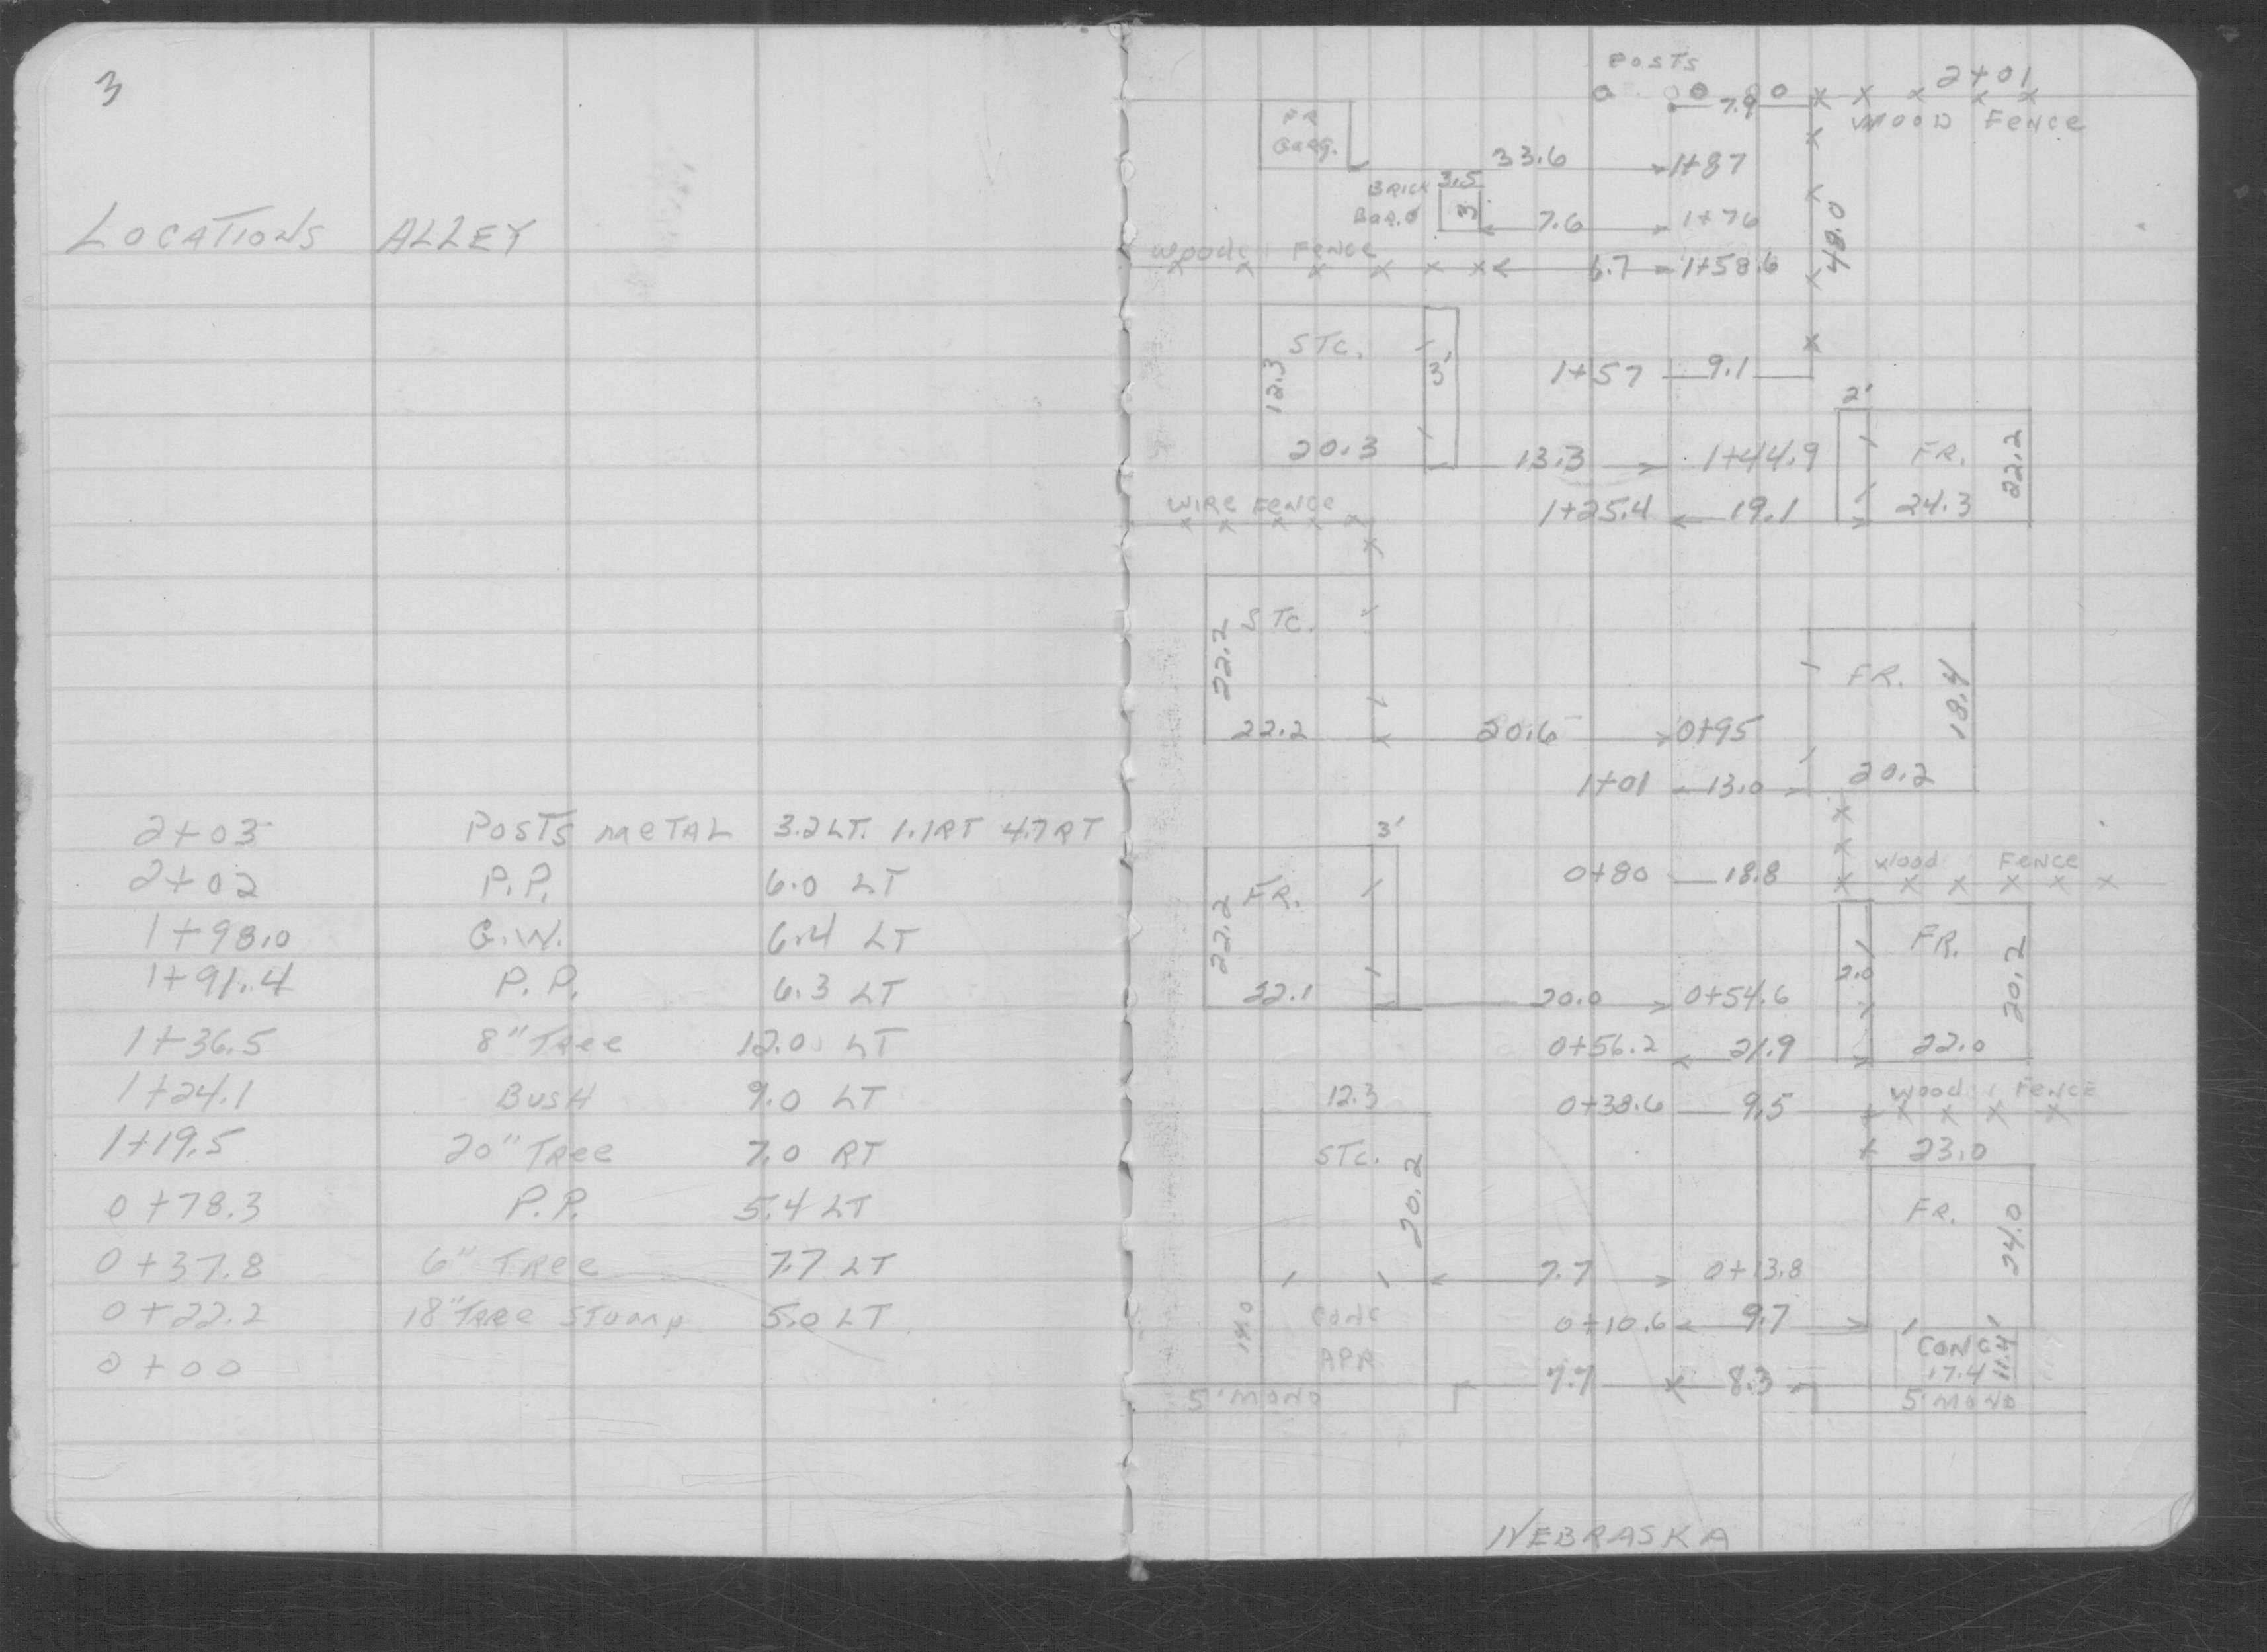 3
LOCATIONS ALLEY
2+03 POSTS METAL 3.2 LT. 1.1 RT 4.7 RT
2+02 P.P. 6.0 LT
1+98.0 G.W. 6.4 LT
1+91.4 P.P. 6.3 LT
1+36.5 8" Tree 12.0 LT
1+24.1 BUSH 9.0 LT
1+19.5 20" Tree 7.0 RT
0+78.3 P.P. 5.4 LT
0+37.8 6" Tree 7.7 LT
0+22.2 18" Tree Stump 5.0 LT
0+00
POSTS 2+01
7.9
FR WOOD Fence
Garg.
33.6 1+87
BRICK 3.5
Bar.Q 3 7.6 1+76
48.0
Wood Fence 6.7 1+58.6
STC.
12.3 3' 1+57 9.1
2'
20.3 13.3 1+44.9 FR. 22.2
WIRE Fence 1+25.4 19.1 24.3
STC.
22.2 FR. 18.4
22.2 20.6 0+95
1+01 13.0 20.2
3'
0+80 18.8 Wood Fence
22.2 FR. FR. 20.2
2.0
22.1 20.0 0+54.6
0+56.2 21.9 22.0
12.3 0+38.6 9.5 Wood Fence
STC. 20.2 23.0
FR. 24.0
7.7 0+13.8
14.0 CONC 0+10.6 9.7
APR CONC
17.4 11.4
7.7 8.3
5' MONO 5' MONO
NEBRASKA